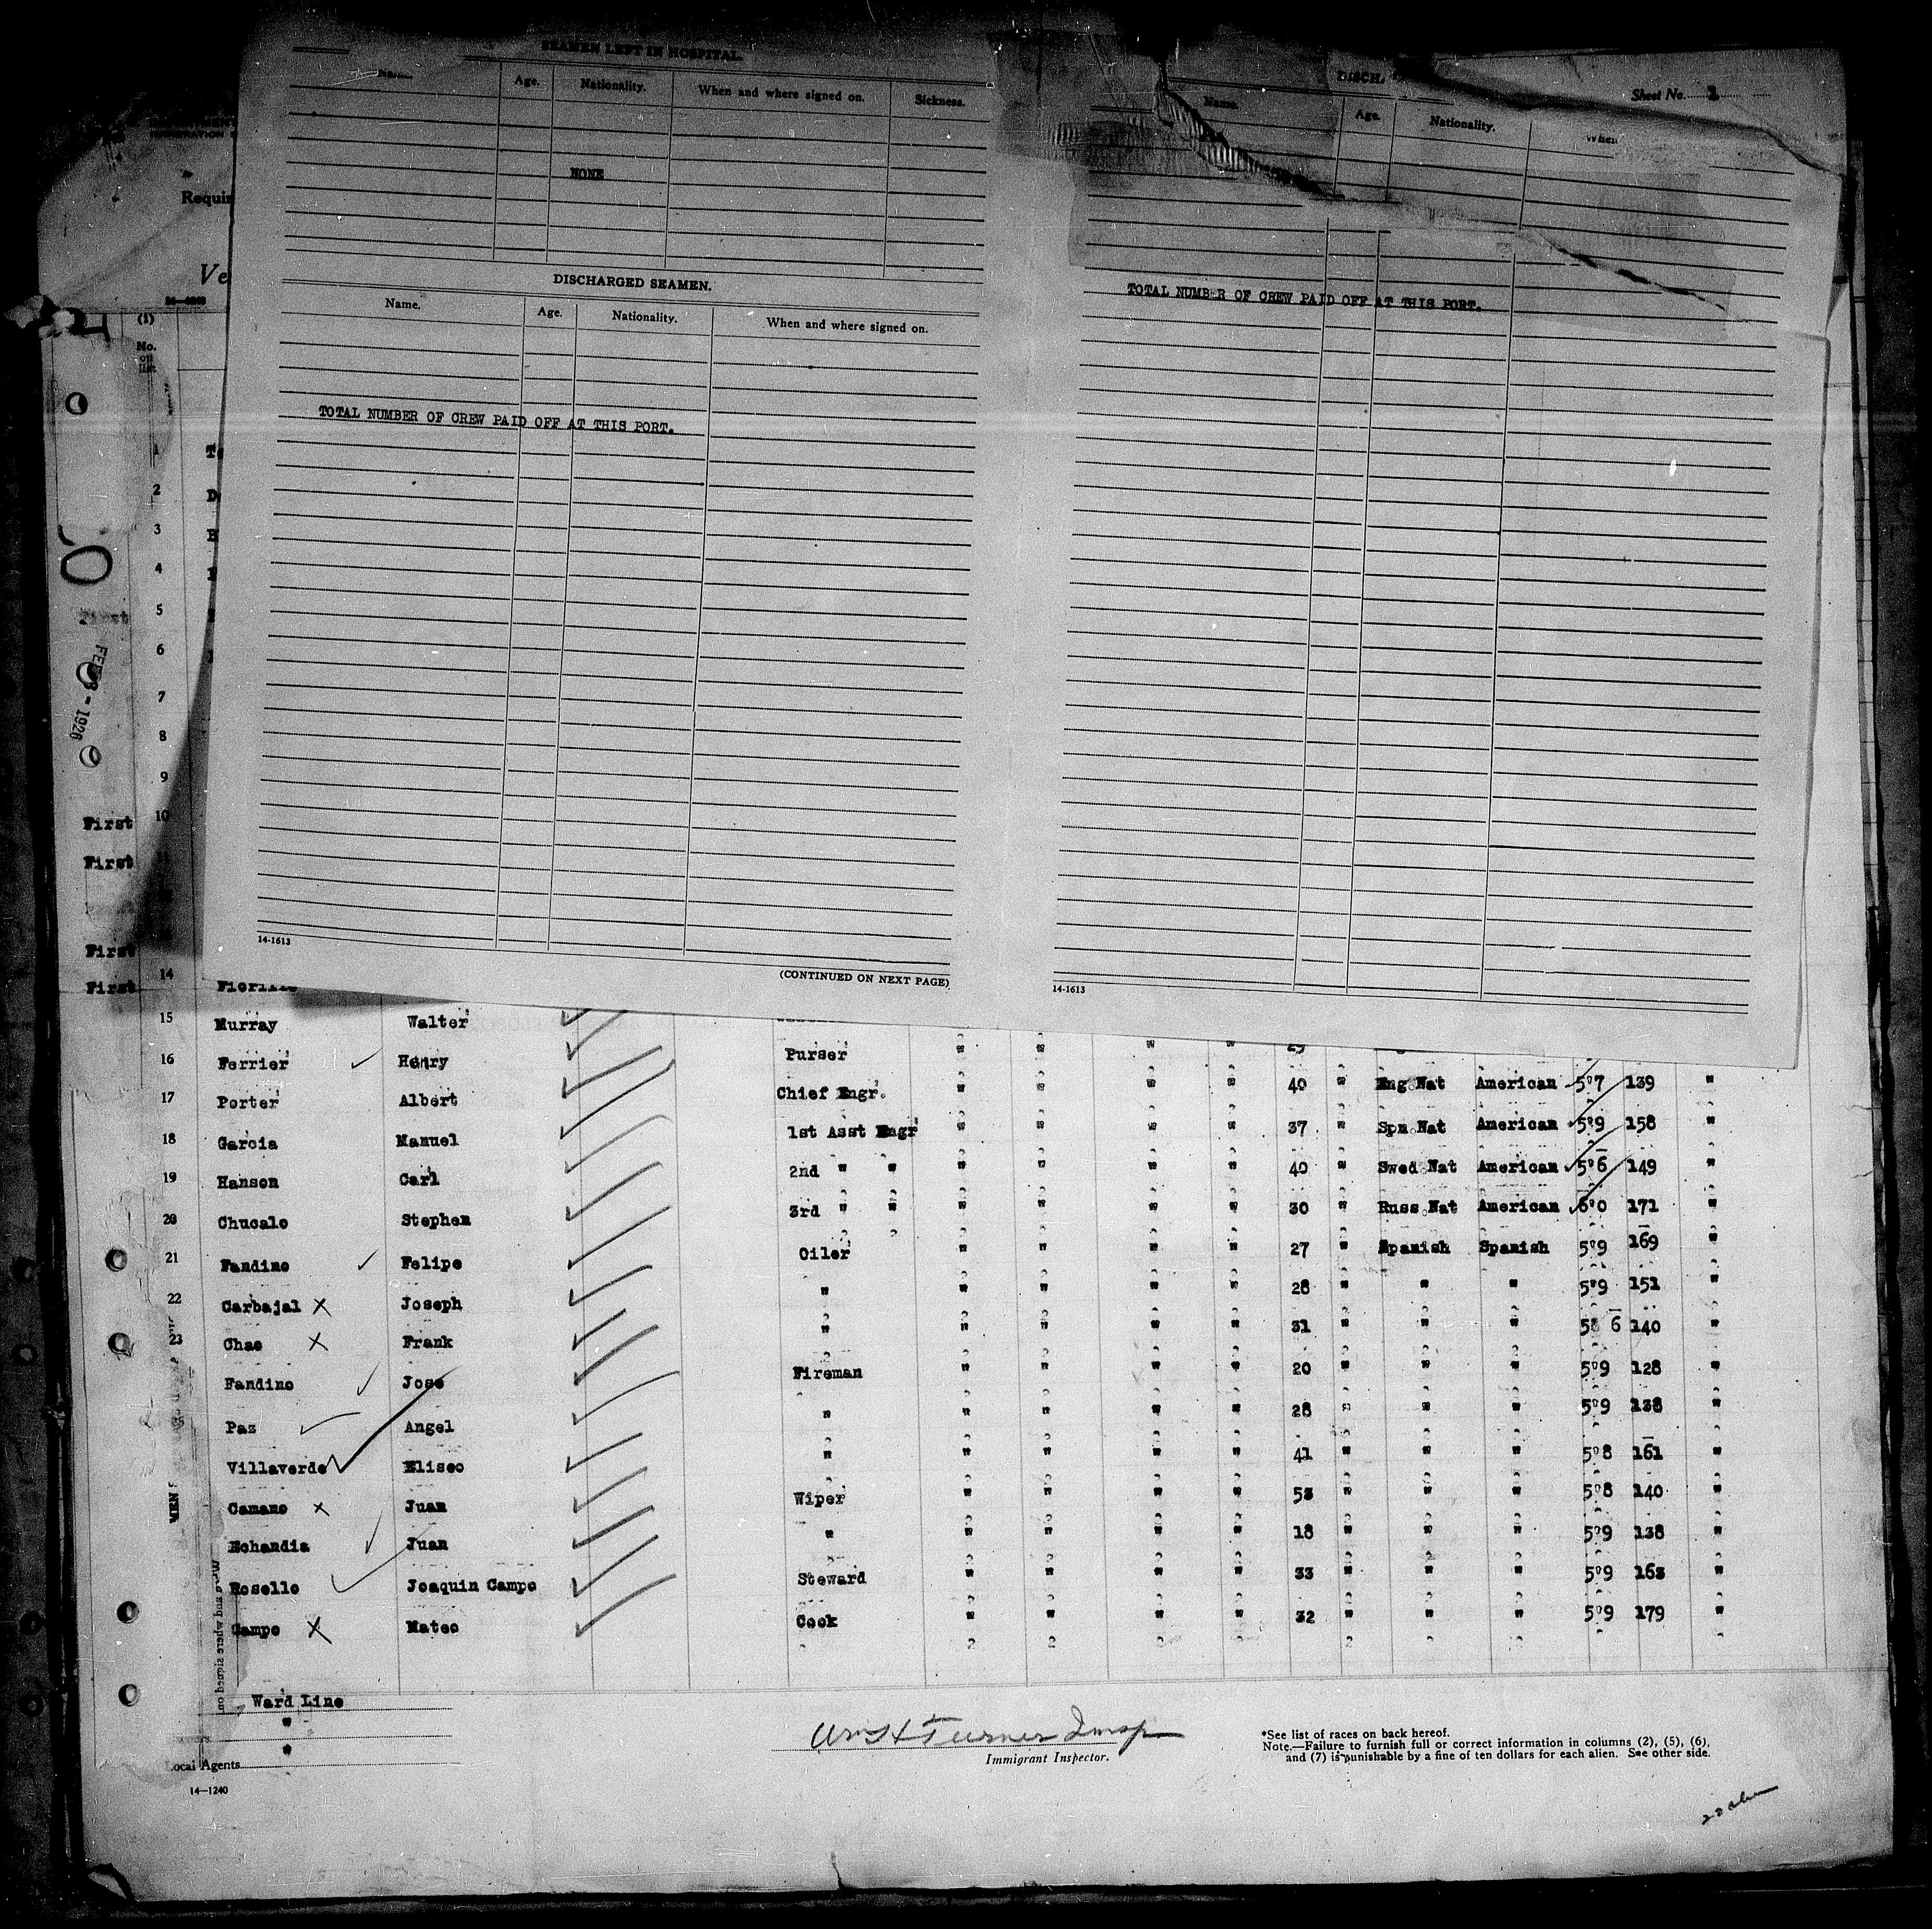 SEAMEN LEFT IN HOSPITAL.
Age. Nationality. When and where signed on. Sickness.
NONE
DISCHARGED SEAMEN.
Name. Age. Nationality. When and where signed on.
TOTAL NUMBER OF CREW PAID OFF AT THIS PORT.
14-1613
(CONTINUED ON NEXT PAGE)
Sheet No. 1
Name. Age. Nationality.
TOTAL NUMBER OF CREW PAID OFF AT THIS PORT.
14-1613
(1)
No. on list
1
2
3
4
First 5
6
FEB 3 - 1926
7
8
9
First 10
First 11
First
First 14
15 Murray Walter
16 Ferrier Henry Purser " " " " 29
17 Porter Albert Chief Engr. " " " " 40 " Eng Nat American 5 7 139 "
18 Garcia Manuel 1st Asst Engr " " " " 37 " Spn Nat American 5 9 158 "
19 Hanson Carl 2nd " " " " " " 40 " Swed Nat American 5 6 149 "
20 Chucalo Stephen 3rd " " " " " " 30 " Russ Nat American 6 0 171 "
21 Fandino Felipe Oiler " " " " 27 " Spanish Spanish 5 9 169 "
22 Carbajal Joseph " " " " " 28 " " " 5 9 151 "
23 Chao Frank " " " " " 31 " " " 5 6 140 "
Fandino Jose Fireman " " " " 20 " " " 5 9 128 "
Paz Angel " " " " " 28 " " " 5 9 138 "
Villaverde Eliseo " " " " " 41 " " " 5 8 161 "
Camano Juan Wiper " " " " 53 " " " 5 8 140 "
Echandia Juan " " " " " 18 " " " 5 9 138 "
Rosello Joaquin Campo Steward " " " " 33 " " " 5 9 163 "
Campo Mateo Cook " " " " 32 " " " 5 9 179 "
Ward Line
"
"
Local Agents
14—1240
Wm H Turner Insp
Immigrant Inspector.
*See list of races on back hereof.
Note.—Failure to furnish full or correct information in columns (2), (5), (6),
and (7) is punishable by a fine of ten dollars for each alien. See other side.